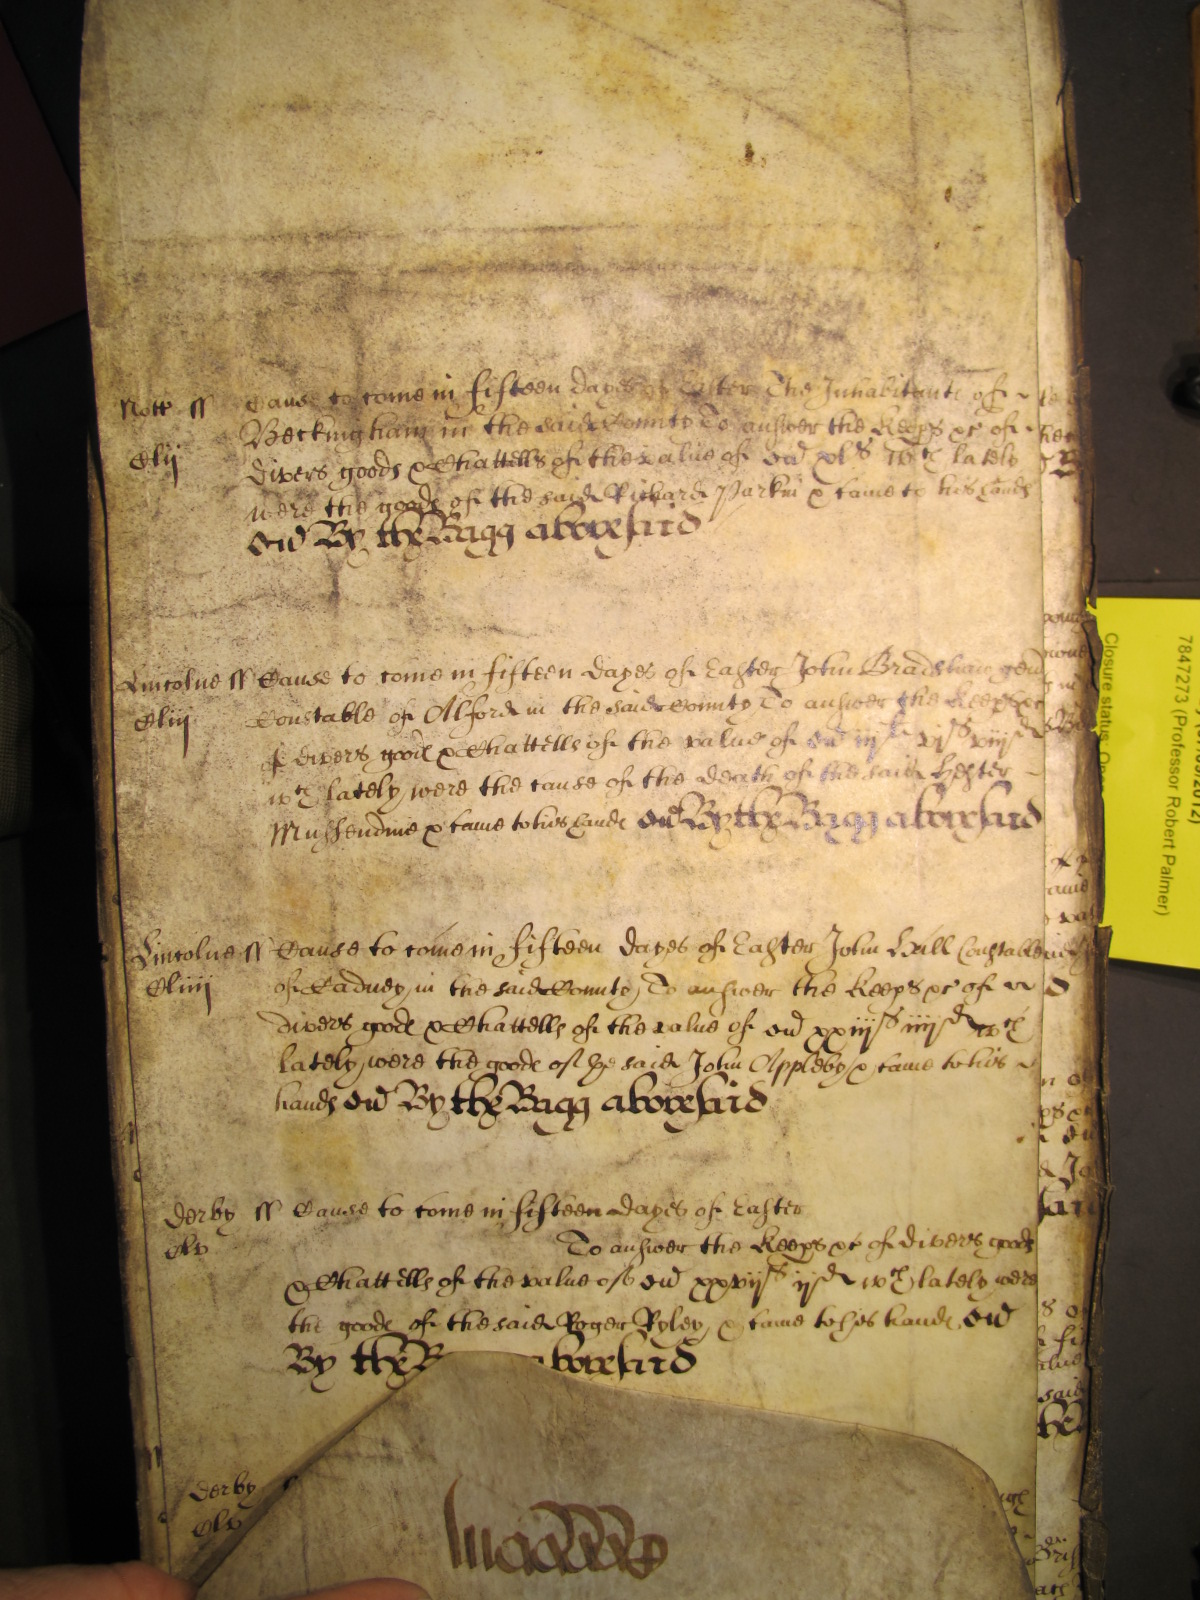 Nott ss Cause to come in fifteen dayes of Easter The Inhabitants of
Beckingham in the said County To answer the Keeps &c of
Clij
divers goods & Chattells of the value of xls wch lately
were the goods of the said Richard Parkin & came to his hands
By the Bagg aboresaid
Lincolne ss Cause to come in fifteen dayes of Easter John Bradshaw gent
Cliij Constable of Alford in the said County To answer the Keeps &c
of divers goods & Chattells of the value of iijli vjs viijd
wch lately were the cause of the death of the said Hester
Mussendine & came to his hands By the Bagg aboresaid
Lincolne ss Cause to come in fifteen dayes of Easter John Hill Constable
Cliiij of Cadney in the said County To answer the Keeps &c of
divers goods & Chattells of the value of xxiijs iiijd wch
lately were the goods of the said John Appleby & came to his
hands By the Bagg aboresaid
Derby ss Cause to come in fifteen dayes of Easter
Clv
To answer the Keeps &c of divers goods
& Chattells of the value of xxvijs ijd wch lately were
the goods of the said Roger Ryley & came to his hands
By the aboresaid
Derby
Clv
Closure status: Open
7847273 (Professor Robert Palmer)